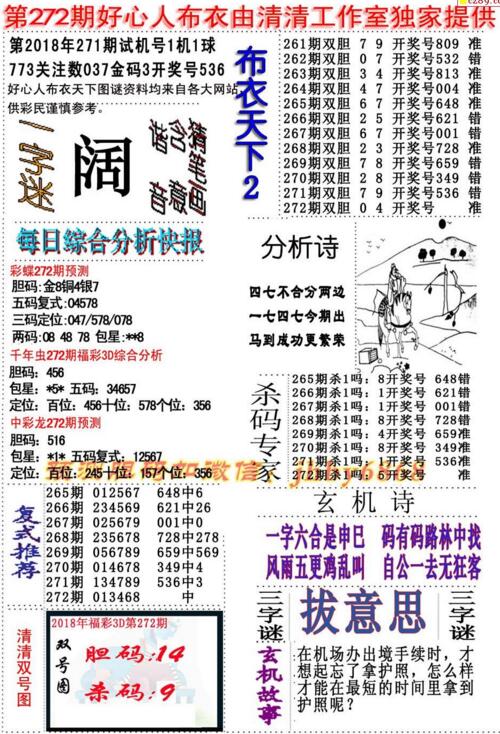 第272期好心人布衣由清清工作室独家提供
第2018年271期试机号1机1球
773关注数037金码3开奖号536
好心人布衣天下图谜资料均来自各大网站
供彩民谨慎参考。
一字迷
阔
猜笔画
含意
谐音
布衣天下2
261期双胆 7 9 开奖号809 准
262期双胆 0 7 开奖号532 错
263期双胆 3 4 开奖号813 准
264期双胆 4 7 开奖号004 准
265期双胆 6 7 开奖号648 准
266期双胆 2 5 开奖号621 错
267期双胆 6 7 开奖号001 错
268期双胆 2 3 开奖号728 准
269期双胆 7 8 开奖号659 错
270期双胆 2 8 开奖号349 错
271期双胆 7 9 开奖号536 错
272期双胆 0 4 开奖号 准
每日综合分析快报
彩蝶272期预测
胆码:金8铜4银7
五码复式:04578
三码定位:047/578/078
两码:08 48 78 包星:**8
千年虫272期福彩3D综合分析
胆码: 456
包星: *5* 五码: 34657
定位: 百位: 456十位: 578个位: 356
中彩龙272期预测
胆码: 516
包星: *1* 五码复式: 12567
定位: 百位: 245十位: 157个位: 356
分析诗
四七不合分两边
一七四七今期出
马到成功更繁荣
杀码专家
265期杀1吗: 8开奖号 648错
266期杀1吗: 1开奖号 621错
267期杀1吗: 1开奖号 001错
268期杀1吗: 8开奖号 728错
269期杀1吗: 4开奖号 659准
270期杀1吗: 2开奖号 349准
271期杀1吗: 5开奖号 536错
272期杀1吗: 5开奖号 准
复式推荐
265期 012567 648中6
266期 234569 621中26
267期 025679 001中0
268期 235678 728中278
269期 056789 659中569
270期 014678 349中4
271期 134789 536中3
272期 013468 中
玄机诗
一字六合是申巳 码有码路林中找
风雨五更鸡乱叫 自公一去无狂客
清清双号图
2018年福彩3D第272期
双号图
胆码:14
杀码:9
三字谜
拔意思
三字谜
玄机故事
在机场办出境手续时，才
想起忘了拿护照，怎么样
才能在最短的时间里拿到
护照呢？